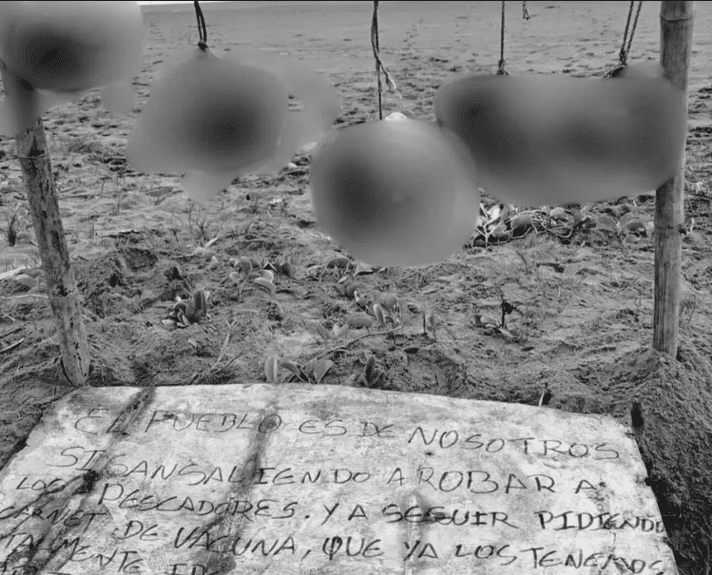 EL PUEBLO ES DE NOSOTROS
SI SANSALIENDO A ROBAR A
LOS PESCADORES. Y A SEGUIR PIDIENDO
CARNET DE VACUNA, QUE YA LOS TENEMOS